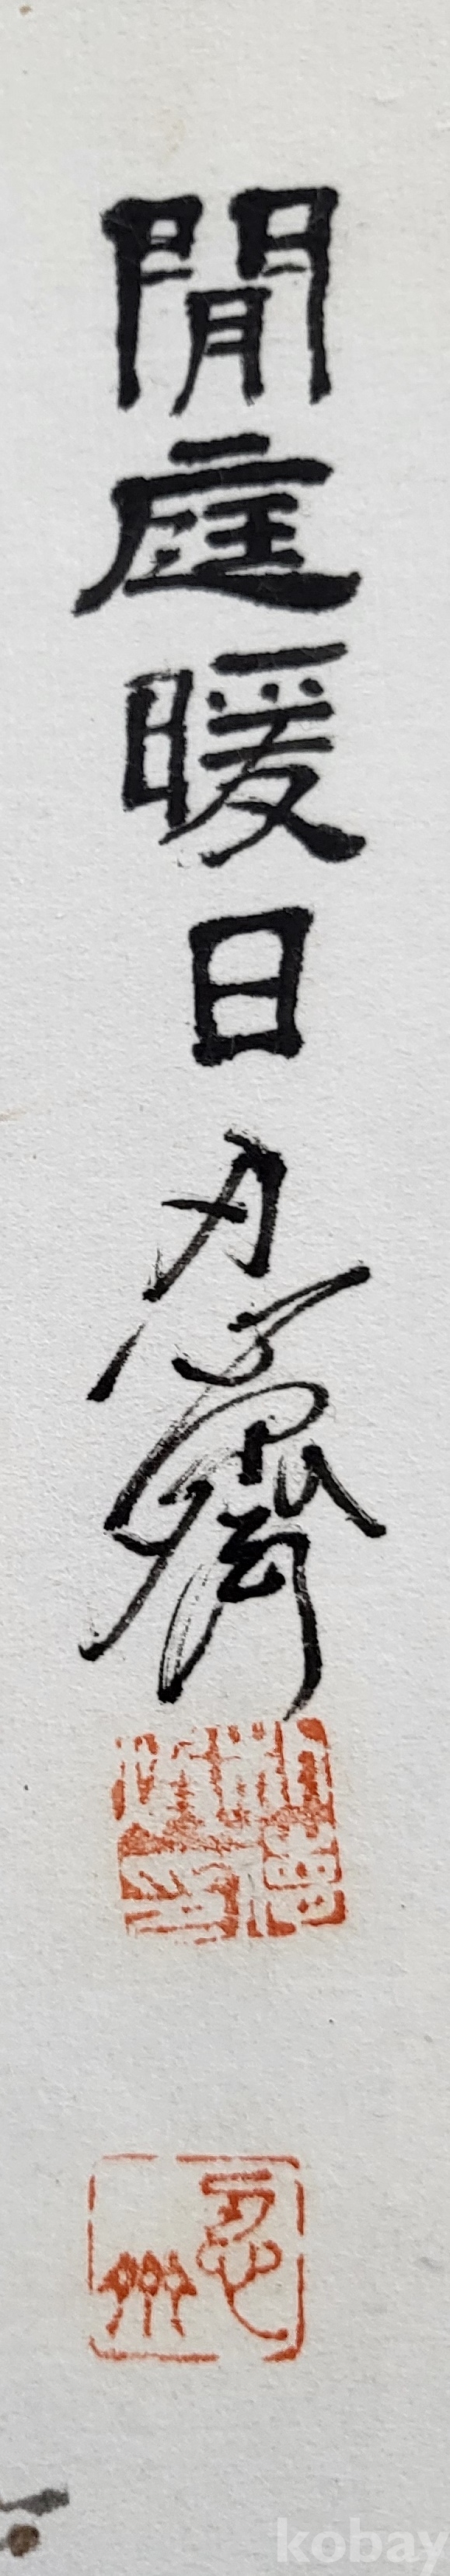 閒庭暖日忍齋
kobay